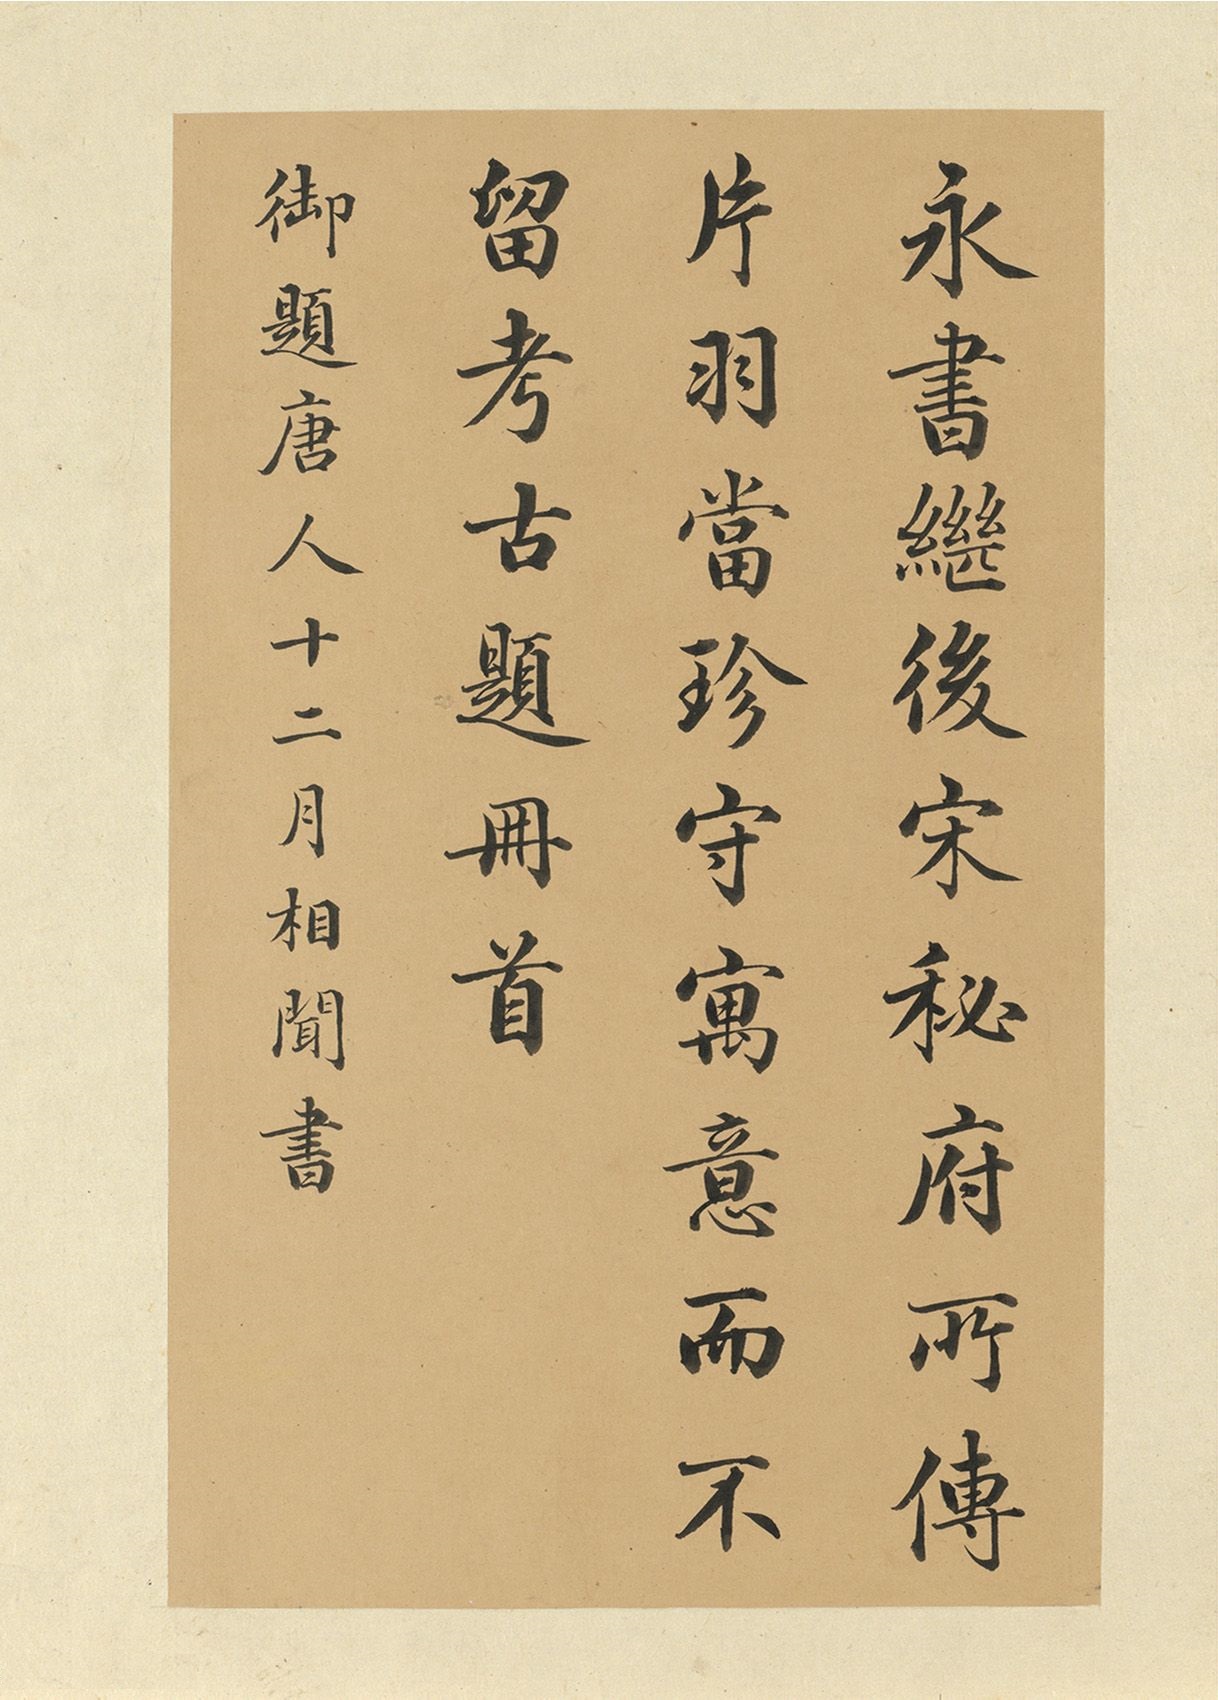 永書繼後宋秘府所傳
片羽當珍守寓意而不
留考古題冊首
御題唐人十二月相聞書